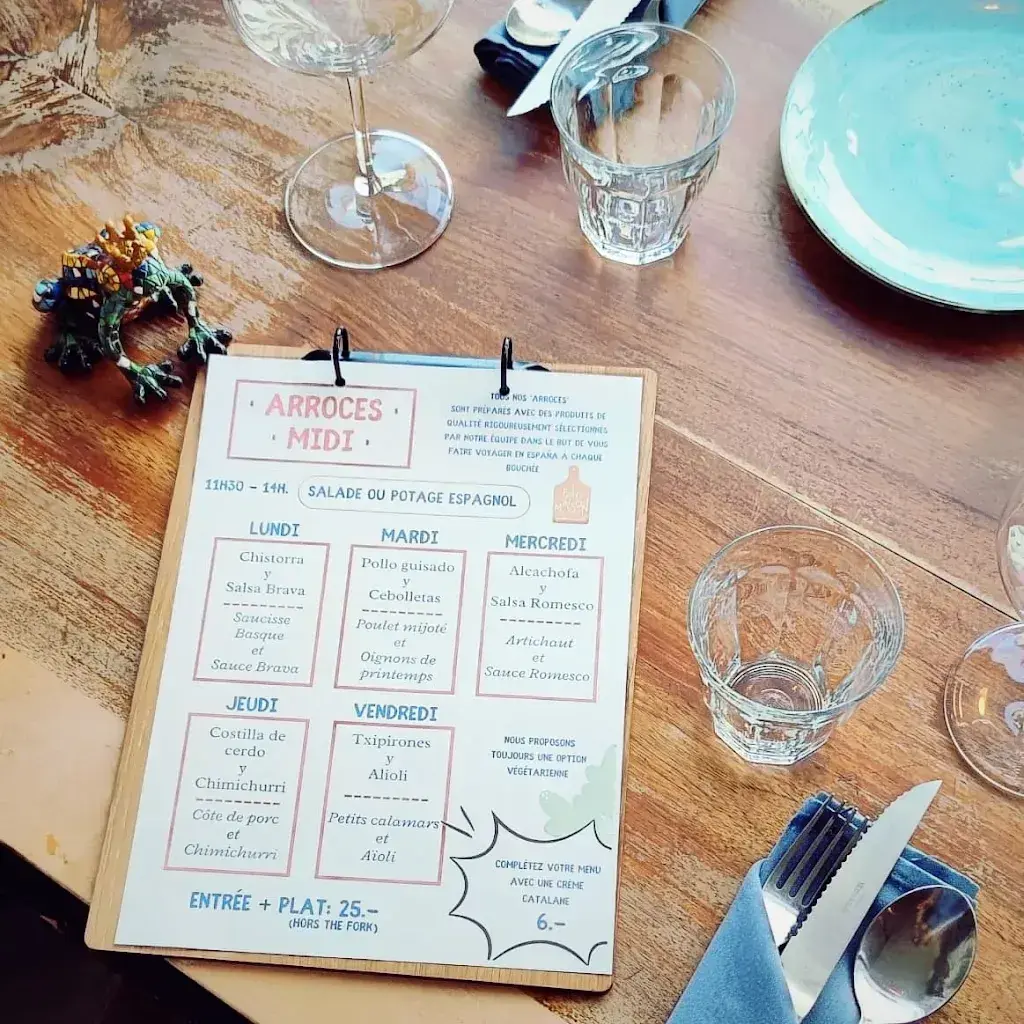 ARROCES
MIDI
TOUS NOS "ARROCES"
SONT PRÉPARÉS AVEC DES PRODUITS DE
QUALITÉ RIGOUREUSEMENT SÉLECTIONNÉS
PAR NOTRE ÉQUIPE DANS LE BUT DE VOUS
FAIRE VOYAGER EN ESPAÑA A CHAQUE
BOUCHÉE
11H30 - 14H.
SALADE OU POTAGE ESPAGNOL
LUNDI
Chistorra
y
Salsa Brava
Saucisse
Basque
et
Sauce Brava
MARDI
Pollo guisado
y
Cebolletas
Poulet mijoté
et
Oignons de
printemps
MERCREDI
Alcachofa
y
Salsa Romesco
Artichaut
et
Sauce Romesco
JEUDI
Costilla de
cerdo
y
Chimichurri
Côte de porc
et
Chimichurri
VENDREDI
Txipirones
y
Alioli
Petits calamars
et
Aïoli
NOUS PROPOSONS
TOUJOURS UNE OPTION
VÉGÉTARIENNE
COMPLÉTEZ VOTRE MENU
AVEC UNE CRÈME
CATALANE
6.-
ENTRÉE + PLAT: 25.-
(HORS THE FORK)